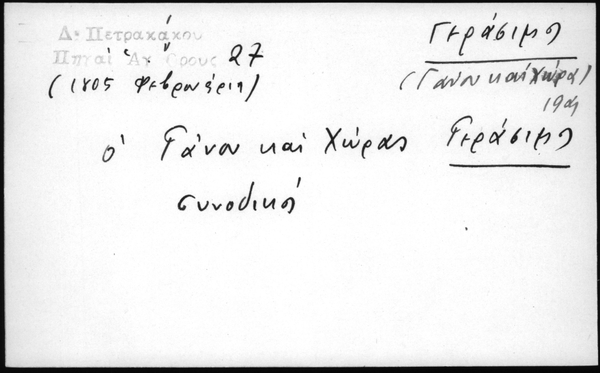 Δ. Πετρακάκου
Πηγαὶ Ἁγ. Ὄρους 27
(1805 Φεβρουάριῳ)
Γεράσιμος
(Γάνου καὶ Χώρας)
ὁ Γάνου καὶ Χώρας Γεράσιμος
συνοδικός